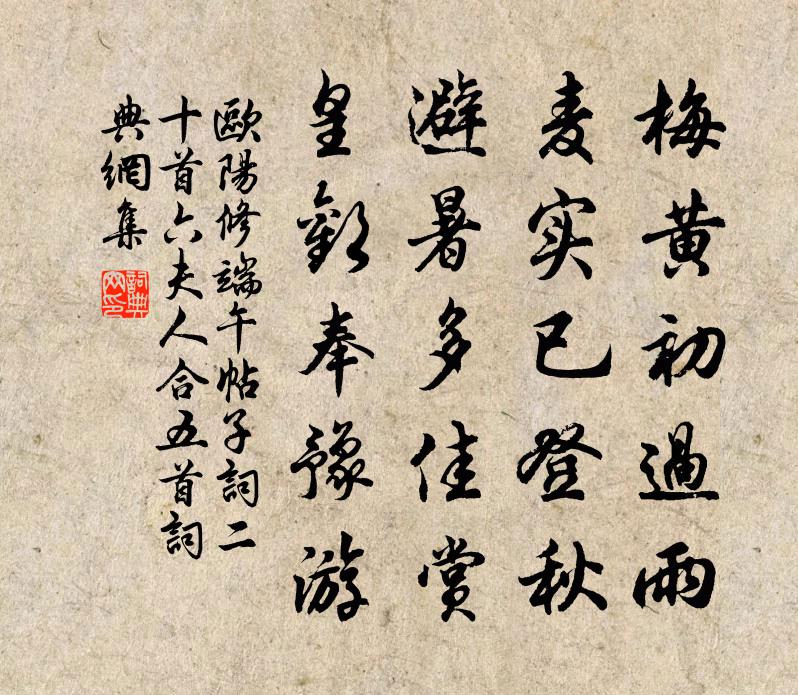 梅黄初過雨
麦实已登秋
避暑多佳赏
皇歡奉豫游
歐陽修端午帖子詞二
十首六夫人合五首詞
典網集
詞典
网印